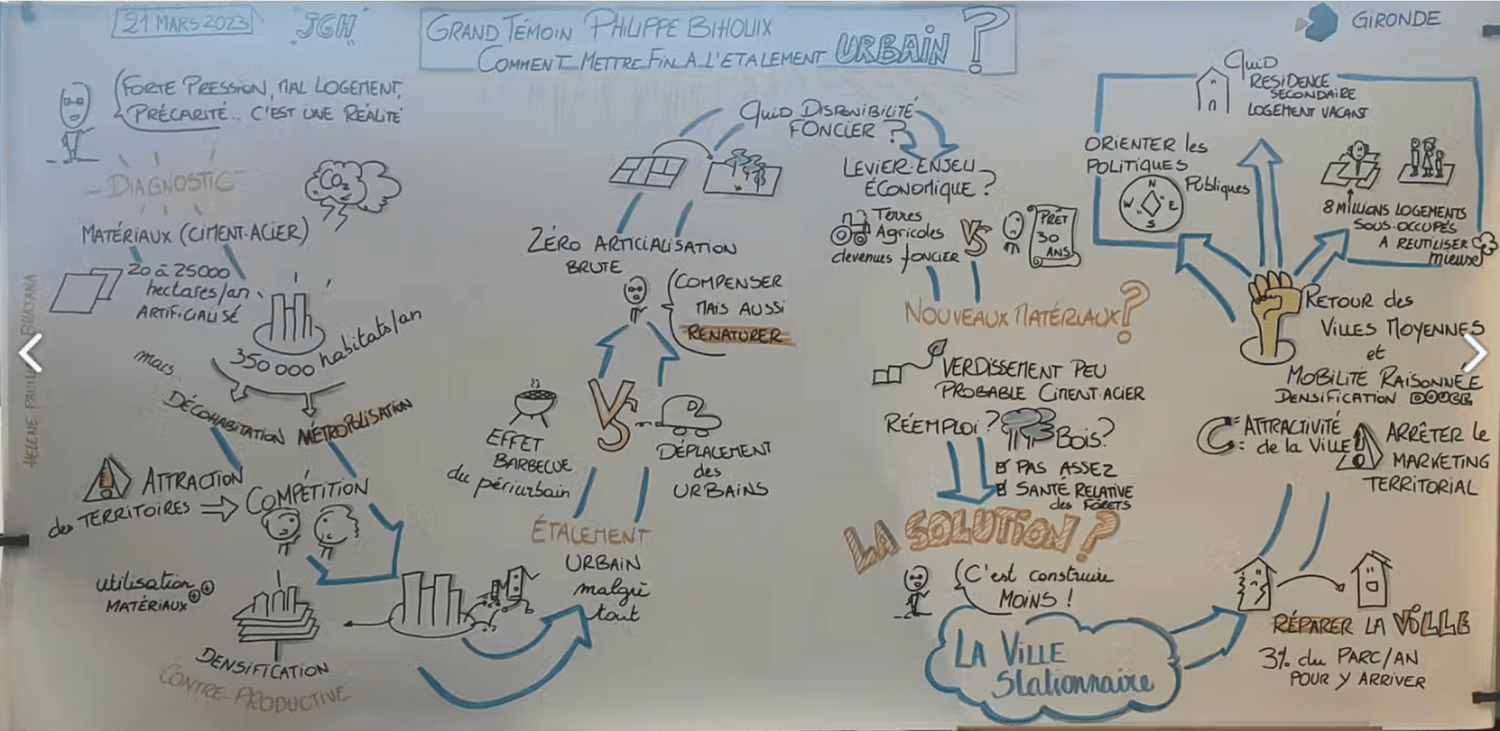 21 MARS 2023
JGH
GRAND TÉMOIN PHILIPPE BIHOUIX
COMMENT METTRE FIN A L'ETALEMENT URBAIN ?
GIRONDE
FORTE PRESSION, MAL LOGEMENT,
PRÉCARITÉ.. C'EST UNE RÉALITÉ
- DIAGNOSTIC -
CO2
MATÉRIAUX (CIMENT-ACIER)
20 à 25000
hectares/an
ARTIFICIALISÉ
350 000 habitats/an
mais..
DÉCOHABITATION
MÉTROPOLISATION
ATTRACTION
des TERRITOIRES
COMPÉTITION
utilisation
MATÉRIAUX ++
DENSIFICATION
CONTRE-PRODUCTIVE
ÉTALEMENT
URBAIN
malgré
tout
EFFET
BARBECUE
du périurbain
VS
DÉPLACEMENT
des
URBAINS
ZÉRO ARTICIALISATION
BRUTE
COMPENSER
MAIS AUSSI
RENATURER
QUID DISPONIBILITÉ
FONCIER ?
LEVIER-ENJEU
ÉCONOMIQUE ?
Terres
Agricoles
devenues foncier
VS
PRÊT
30
ANS
NOUVEAUX MATÉRIAUX ?
VERDISSEMENT PEU
PROBABLE CIMENT-ACIER
RÉEMPLOI ?
BOIS ?
PAS ASSEZ
SANTÉ RELATIVE
des FORÊTS
LA SOLUTION ?
C'est construire
MOINS !
LA VILLE
Stationnaire
RÉPARER LA VILLE
3% du PARC/AN
POUR Y ARRIVER
ATTRACTIVITÉ
de la VILLE
ARRÊTER le
MARKETING
TERRITORIAL
RETOUR des
VILLES MOYENNES
et
MOBILITÉ RAISONNÉE
DENSIFICATION DOUCE
ORIENTER les
POLITIQUES
Publiques
N
W E
S
Quid
RESIDENCE
SECONDAIRE
LOGEMENT VACANT
8 MILLIONS LOGEMENTS
SOUS-OCCUPÉS
A REUTILISER
mieux